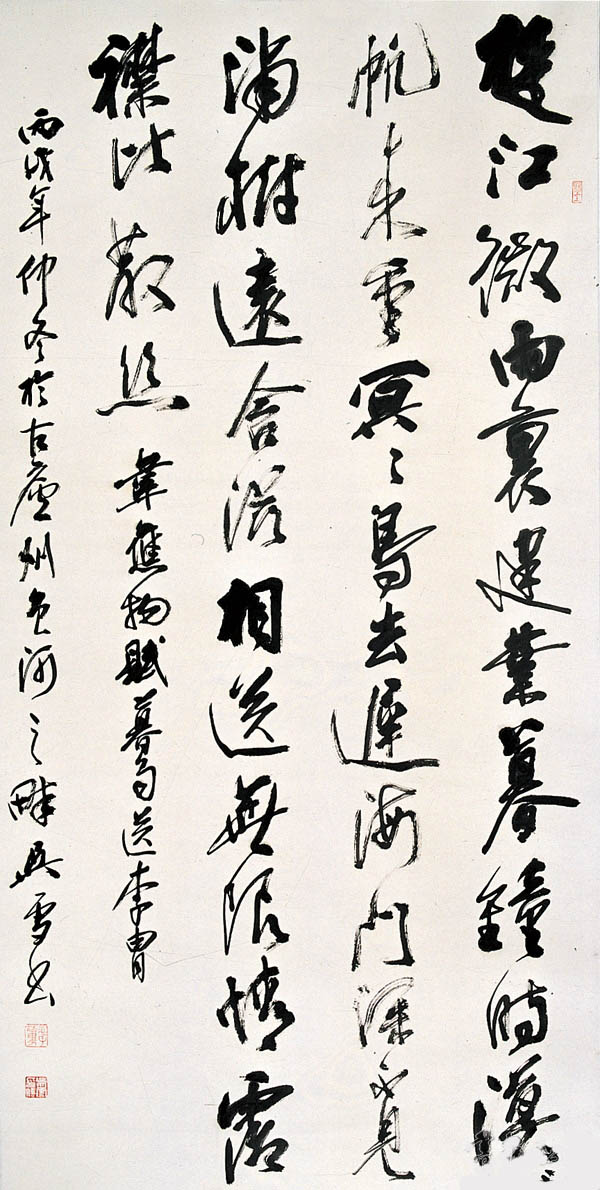 楚江微雨裏建業暮鐘時漠〻
帆来重冥〻鳥去遲海門深不見
浦樹遠含滋相送無限情霑
襟比散絲 韋應物賦暮雨送李胄
丙戌年仲冬於古廬州包河之畔吴雪書